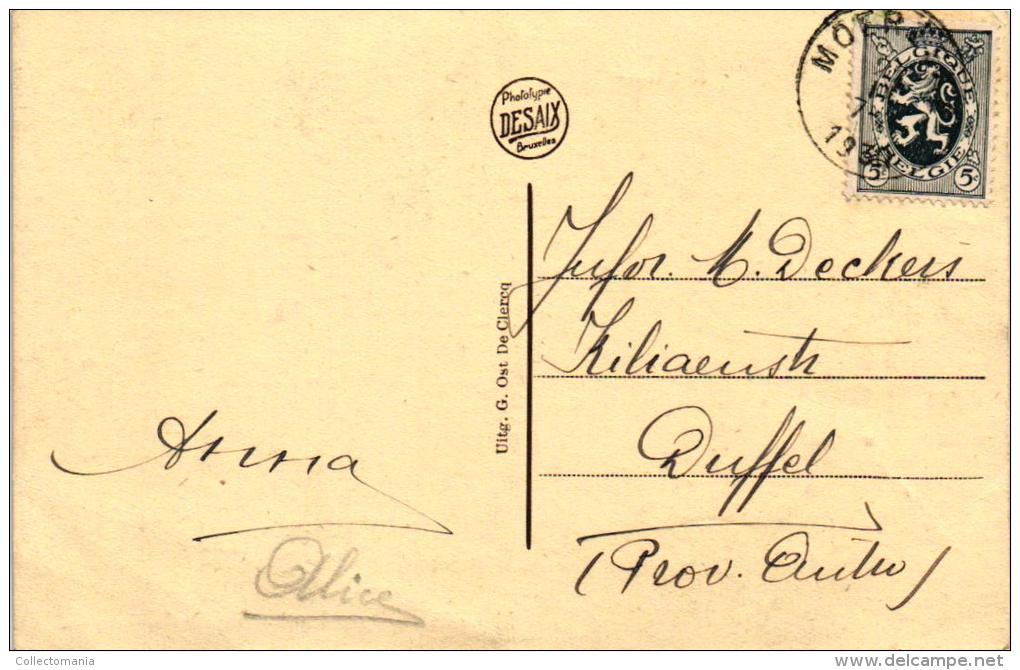 Phototypie
DESAIX
Bruxelles
MOER
BELGIQUE
BELGIË
5c 5c
7
Uitg. G. Ost De Clercq
Jufvr. M. Deckers
Kiliaenstr
Duffel
(Prov. Antw)
Anna
Alice
Collectomania
delcampe.net